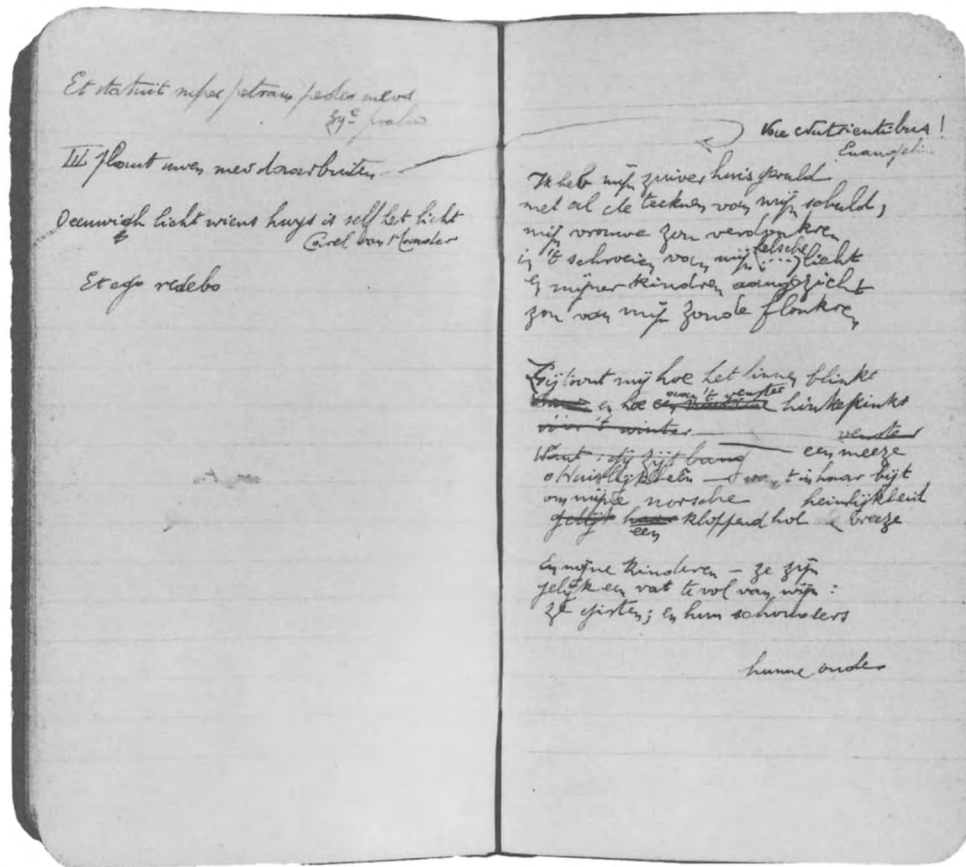 Et statuit super petram pedes meos
39e psalm
III plant uwen mei daarbuiten
Oeeuwigh licht wiens huys is self het licht
Carel van Mander
Et ego redebo
Vae nutrientibus!
Evangelie
Ik heb mijn zuiver huis gevuld
met al de teeknen van mijn schuld;
mijn vrouwe zou verdonkren
in 't schroeien van mijn (.....) licht
helsche
en mijner kindren aangezicht
zou van mijn zonde flonkren
Gij toont mij hoe het linnen blinkt
en hoe aan 't venster hinkepinkt
vóór 't winter venster
Want: gij zijt bang een meeze
o Huislijkheên 't is haar bijt
om mijne norsche heimlijkheid
gelijk haar kloppend hol breeze
een
En mijne kinderen – ze zijn
gelijk een vat te vol van wijn:
ze gisten; en hun schouders
hunne ouders